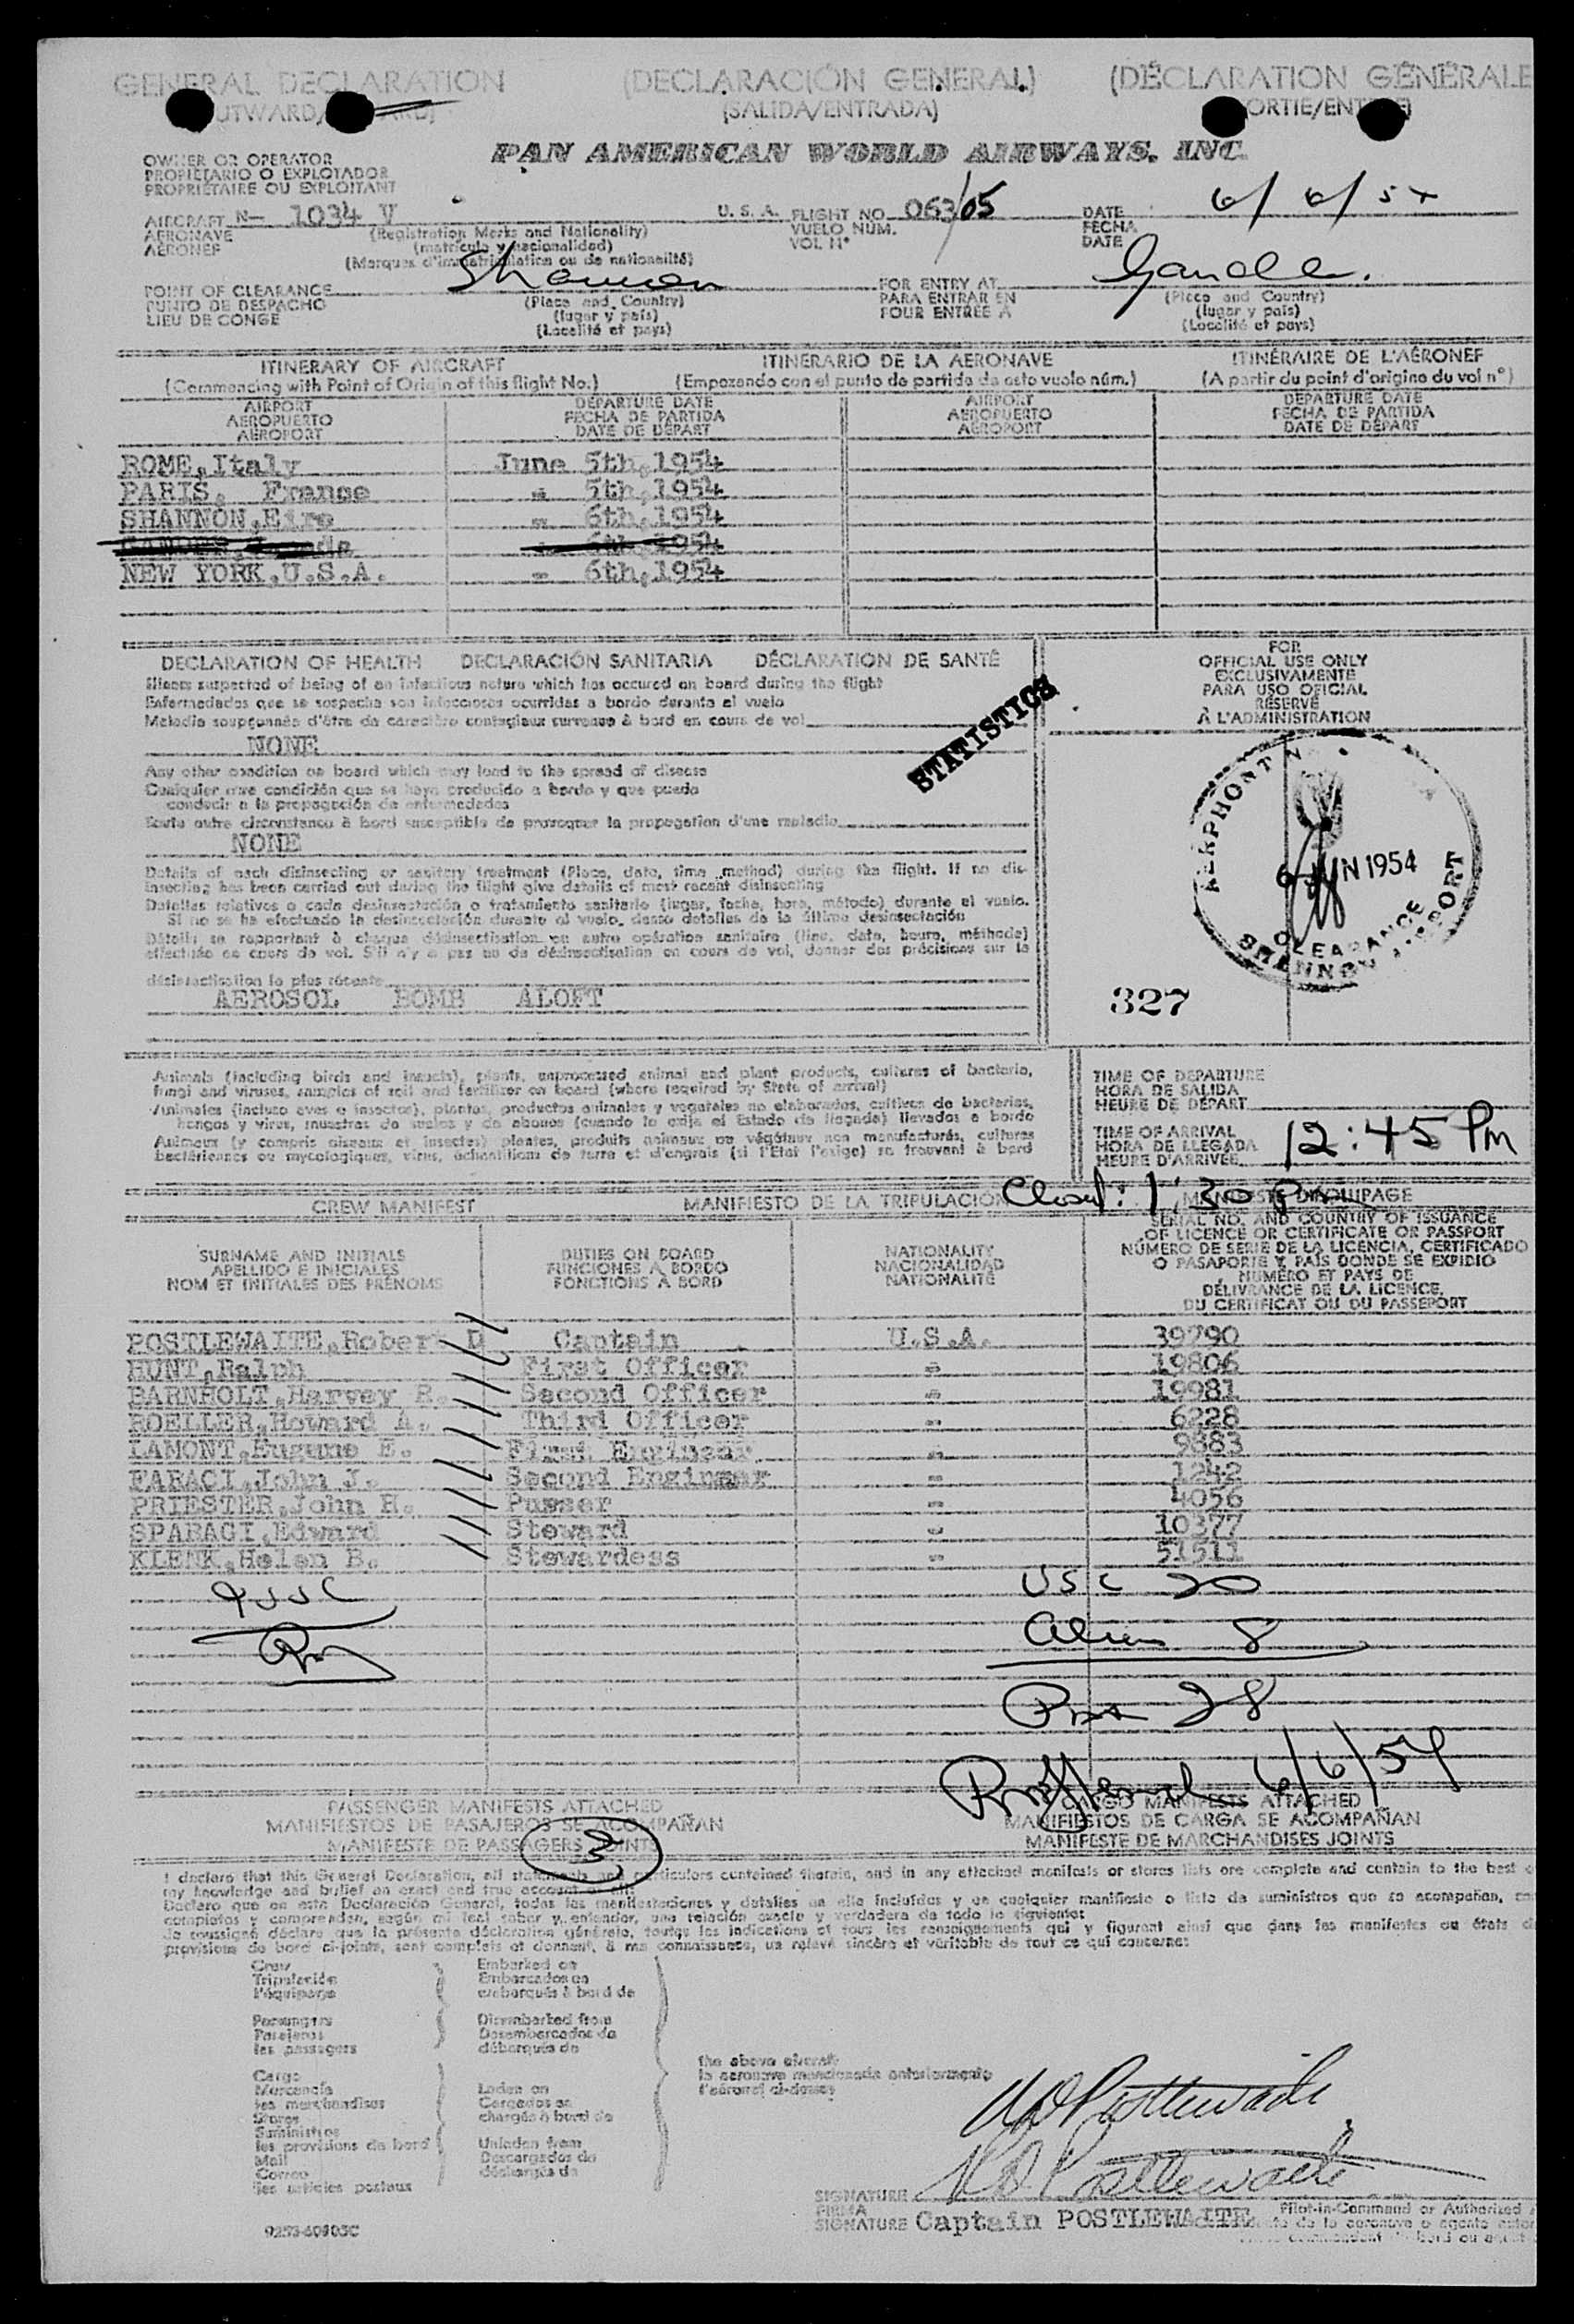 GENERAL DECLARATION (DECLARACIÓN GENERAL) (DÉCLARATION GÉNÉRALE
(SALIDA/ENTRADA)
PAN AMERICAN WORLD AIRWAYS, INC.
OWNER OR OPERATOR
PROPIETARIO O EXPLOTADOR
PROPRIÉTAIRE OU EXPLOITANT
AIRCRAFT N- 1034 V U. S. A. FLIGHT NO. 063/05 DATE 6/6/54
AERONAVE (Registration Marks and Nationality) VUELO NÚM. FECHA
AÉRONEF (matrícula y nacionalidad) VOL N° DATE
(Marques d'immatriculation ou de nationalité)
POINT OF CLEARANCE Shannon FOR ENTRY AT Gander
PUNTO DE DESPACHO (Place and Country) PARA ENTRAR EN (Place and Country)
LIEU DE CONGE (lugar y país) POUR ENTRÉE A (lugar y país)
(Localité et pays) (Localité et pays)
ITINERARY OF AIRCRAFT ITINERARIO DE LA AERONAVE ITINÉRAIRE DE L'AÉRONEF
(Commencing with Point of Origin of this flight No.) (Empezando con el punto de partida de este vuelo núm.) (A partir du point d'origine du vol n°)
AIRPORT DEPARTURE DATE AIRPORT DEPARTURE DATE
AEROPUERTO FECHA DE PARTIDA AEROPUERTO FECHA DE PARTIDA
AÉROPORT DATE DE DÉPART AÉROPORT DATE DE DÉPART
ROME, Italy June 5th, 1954
PARIS, France " 5th, 1954
SHANNON, Eire " 6th, 1954
GANDER, Canada " 6th, 1954
NEW YORK, U.S.A. " 6th, 1954
DECLARATION OF HEALTH DECLARACIÓN SANITARIA DÉCLARATION DE SANTÉ
Illness suspected of being of an infectious nature which has occured on board during the flight
Enfermedades que se sospecha son infecciosas ocurridas a bordo durante el vuelo
Maladie soupçonnée d'être de caractère contagieux survenue à bord en cours de vol
NONE
Any other condition on board which may lead to the spread of disease
Cualquier otra condición que se haya producido a bordo y que pueda
conducir a la propagación de enfermedades
Toute autre circonstance à bord susceptible de provoquer la propagation d'une maladie
NONE
Details of each disinsecting or sanitary treatment (Place, date, time, method) during the flight. If no dis-
insecting has been carried out during the flight give details of most recent disinsecting
Detalles relativos a cada desinsectación o tratamiento sanitario (lugar, fecha, hora, método) durante el vuelo.
Si no se ha efectuado la desinsectación durante el vuelo, dense detalles de la última desinsectación
Détails se rapportant à chaque désinsectisation ou autre opération sanitaire (lieu, date, heure, méthode)
effectuée en cours de vol. S'il n'y a pas eu de désinsectisation en cours de vol, donner des précisions sur la
désinsectisation la plus récente
AEROSOL BOMB ALOFT
STATISTICS
FOR
OFFICIAL USE ONLY
EXCLUSIVAMENTE
PARA USO OFICIAL
RÉSERVÉ
À L'ADMINISTRATION
6 JUN 1954
CLEARANCE
SHANNON AIRPORT
327
Animals (including birds and insects), plants, unprocessed animal and plant products, cultures of bacteria,
fungi and viruses, samples of soil and fertilizer on board (where required by State of arrival)
Animales (incluso aves e insectos), plantas, productos animales y vegetales no elaborados, cultivos de bacterias,
hongos y virus, muestras de suelos y de abonos (cuando lo exija el Estado de llegada) llevados a bordo
Animaux (y compris oiseaux et insectes) plantes, produits animaux ou végétaux non manufacturés, cultures
bactériennes ou mycologiques, virus, échantillons de terre et d'engrais (si l'Etat l'exige) se trouvant à bord
TIME OF DEPARTURE
HORA DE SALIDA
HEURE DE DÉPART
TIME OF ARRIVAL
HORA DE LLEGADA 12:45 Pm
HEURE D'ARRIVÉE
CREW MANIFEST MANIFIESTO DE LA TRIPULACIÓN
1:30 Pm
SURNAME AND INITIALS DUTIES ON BOARD NATIONALITY SERIAL NO. AND COUNTRY OF ISSUANCE
APELLIDO E INICIALES FUNCIONES A BORDO NACIONALIDAD OF LICENCE OR CERTIFICATE OR PASSPORT
NOM ET INITIALES DES PRÉNOMS FONCTIONS À BORD NATIONALITÉ NÚMERO DE SERIE DE LA LICENCIA, CERTIFICADO
O PASAPORTE Y PAÍS DONDE SE EXPIDIO
NUMÉRO ET PAYS DE
DÉLIVRANCE DE LA LICENCE,
DU CERTIFICAT OU DU PASSEPORT
POSTLEWAITE, Robert D Captain U.S.A. 39790
HUNT, Ralph First Officer " 19806
BARNHOLT, Harvey R. Second Officer " 19981
ROELLER, Howard A. Third Officer " 6228
LAMONT, Eugene E. First Engineer " 9883
FARACI, John J. Second Engineer " 1242
PRIESTER, John R. Purser " 4056
SPARACI, Edward Steward " 10377
KLENK, Helen B. Stewardess " 51511
USC 20
Aliens 8
28
6/6/54
PASSENGER MANIFESTS ATTACHED CARGO MANIFESTS ATTACHED
MANIFIESTOS DE PASAJEROS SE ACOMPAÑAN MANIFIESTOS DE CARGA SE ACOMPAÑAN
MANIFESTE DE PASSAGERS JOINTS 3 MANIFESTE DE MARCHANDISES JOINTS
I declare that this General Declaration, all statements and particulars contained therein, and in any attached manifests or stores lists are complete and contain to the best o
my knowledge and belief an exact and true account of all:
Declaro que en esta Declaración General, todas las manifestaciones y detalles en ella incluídos y en cualquier manifiesto o lista de suministros que se acompañan,
completos y comprenden, según mi leal saber y entender, una relación exacta y verdadera de todo lo siguiente:
Je soussigné déclare que la présente déclaration générale, toutes les indications et tous les renseignements qui y figurent ainsi que dans les manifestes ou états d
provisions de bord ci-joints, sont complets et donnent, à ma connaissance, un relevé sincère et véritable de tout ce qui concerne:
Crew Embarked on
Tripulación Embarcados en
l'équipage embarqués à bord de
Passengers Disembarked from
Pasajeros Desembarcados de
les passagers débarqués de
the above aircraft
la aeronave mencionada anteriormente
l'aéronef ci-dessus
Cargo
Mercancía Laden on
les marchandises Cargados en
Stores chargés à bord de
Suministros
les provisions de bord Unladen from
Mail Descargados de
Correo déchargés de
les articles postaux
Postlewaite
Postlewaite
SIGNATURE
FIRMA Pilot-in-Command or Authorized
SIGNATURE Captain POSTLEWAITE
9293-60903C